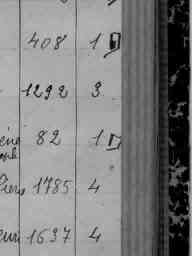 408 1
1292 3
82 1
1785 4
1637 4